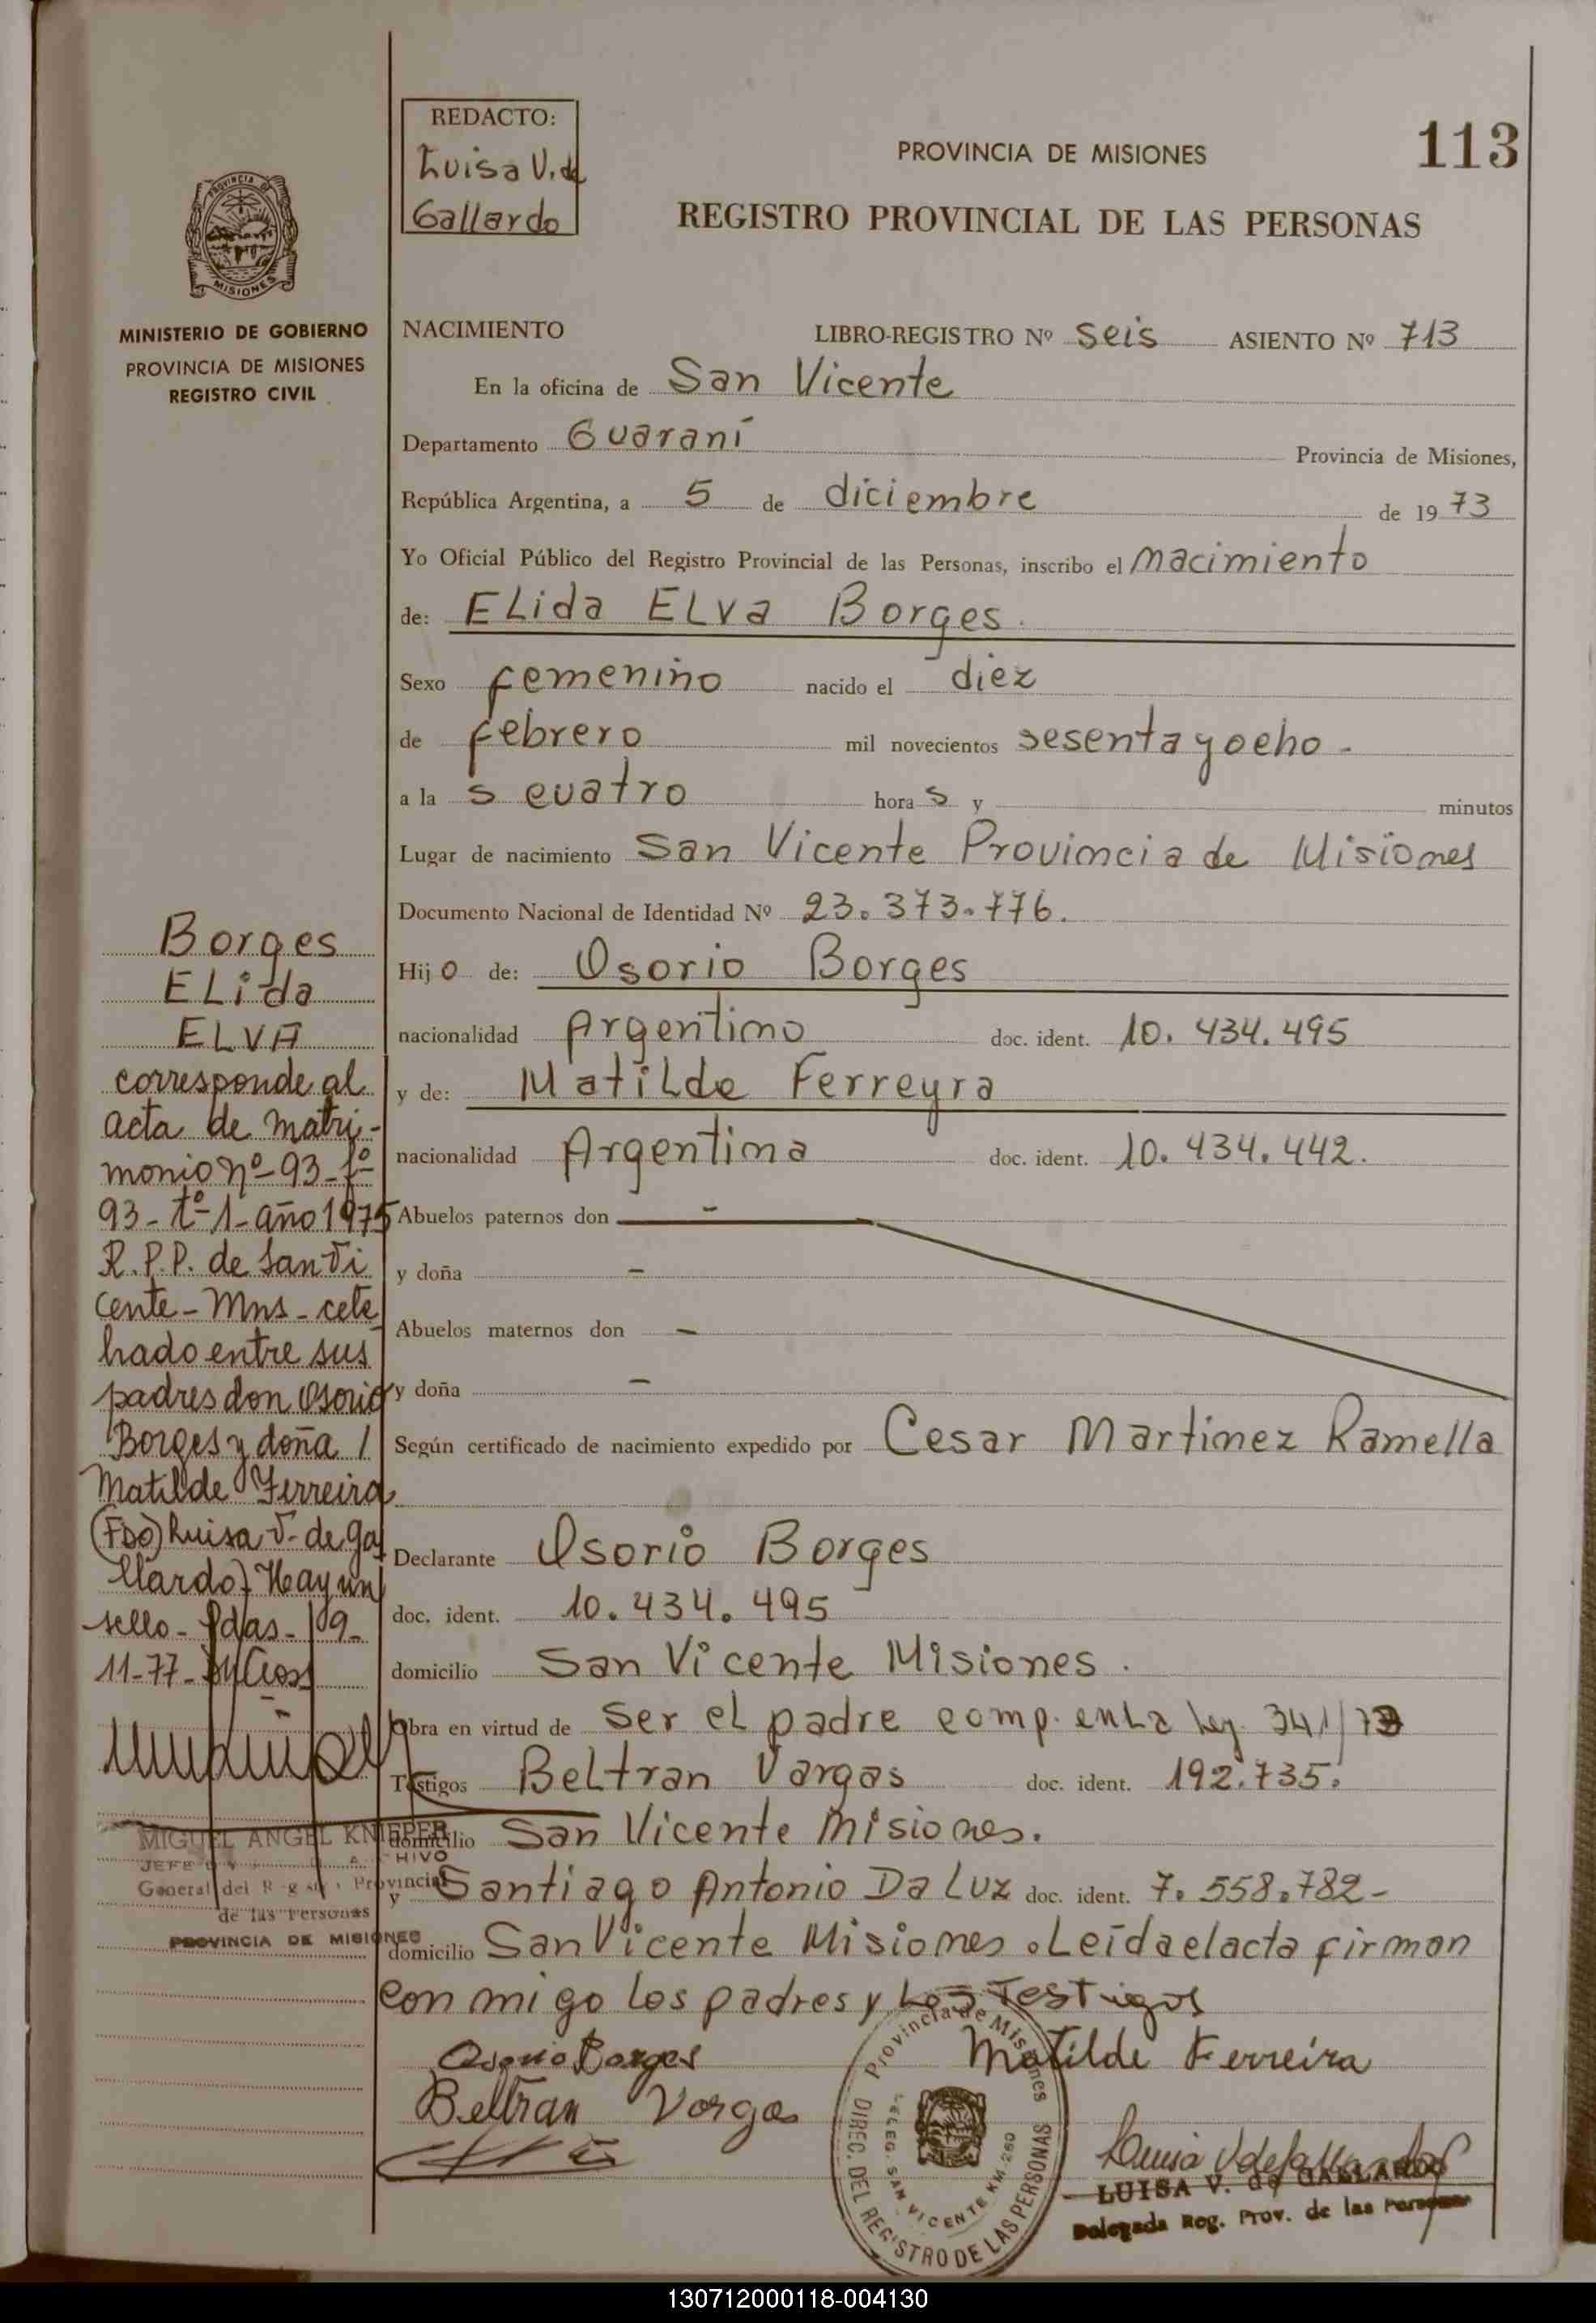 REDACTO:
Luisa V. de
Gallardo
PROVINCIA DE MISIONES
113
REGISTRO PROVINCIAL DE LAS PERSONAS
PROVINCIA DE
MISIONES
MINISTERIO DE GOBIERNO
PROVINCIA DE MISIONES
REGISTRO CIVIL
NACIMIENTO LIBRO-REGISTRO Nº Seis ASIENTO Nº 713
En la oficina de San Vicente
Departamento Guaraní Provincia de Misiones,
República Argentina, a 5 de diciembre de 1973
Yo Oficial Público del Registro Provincial de las Personas, inscribo el nacimiento
de: ELida ELva Borges.
Sexo femenino nacido el diez
de febrero mil novecientos sesenta y ocho -
a las cuatro horas y minutos
Lugar de nacimiento San Vicente Provincia de Misiones
Documento Nacional de Identidad Nº 23.373.776.
Hijo de: Osorio Borges
nacionalidad Argentino doc. ident. 10.434.495
y de: Matilde Ferreyra
nacionalidad Argentina doc. ident. 10.434.442.
Abuelos paternos don -
y doña -
Abuelos maternos don -
y doña -
Según certificado de nacimiento expedido por Cesar Martinez Ramella
Declarante Osorio Borges
doc. ident. 10.434.495
domicilio San Vicente Misiones.
Obra en virtud de ser el padre comp. en La Ley. 341/73
Testigos Beltran Vargas doc. ident. 192.735.
domicilio San Vicente Misiones.
y Santiago Antonio Da Luz doc. ident. 7.558.782-
domicilio San Vicente Misiones. Leida el acta firman
conmigo los padres y los Testigos
Osorio Borges
Matilde Ferreira
Beltran Vargas
Provincia de Misiones
DIREC. DEL REGISTRO DE LAS PERSONAS
DELEG. SAN VICENTE KM. 260
Luisa V de Gallardo
LUISA V. de GALLARDO
Delegada Reg. Prov. de las Personas
Borges
ELida
ELVA
corresponde al
acta de matri-
monio nº 93 - fº
93 - tº 1 - año 1975
R.P.P. de San Vi
cente - Mns - cele
brado entre sus
padres don Osorio
Borges y doña /
Matilde Ferreira
(FDO) Luisa V. de Ga
llardo) Hay un
sello - Pdas - 09 -
11-77-
MIGUEL ANGEL KNIEPER
JEFE ARCHIVO
General del Registro Provincial
de las Personas
PROVINCIA DE MISIONES
130712000118-004130